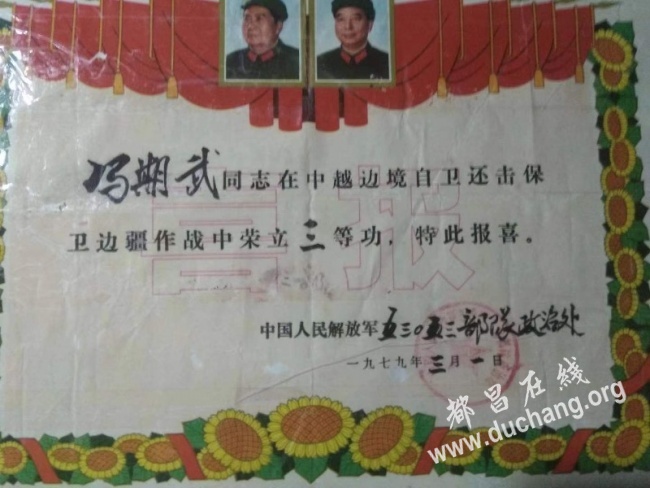 喜报
冯期武同志在中越边境自卫还击保
卫边疆作战中荣立三等功，特此报喜。
中国人民解放军五三〇五三部队政治处
一九七九年三月一日
都昌在线
www.duchang.org